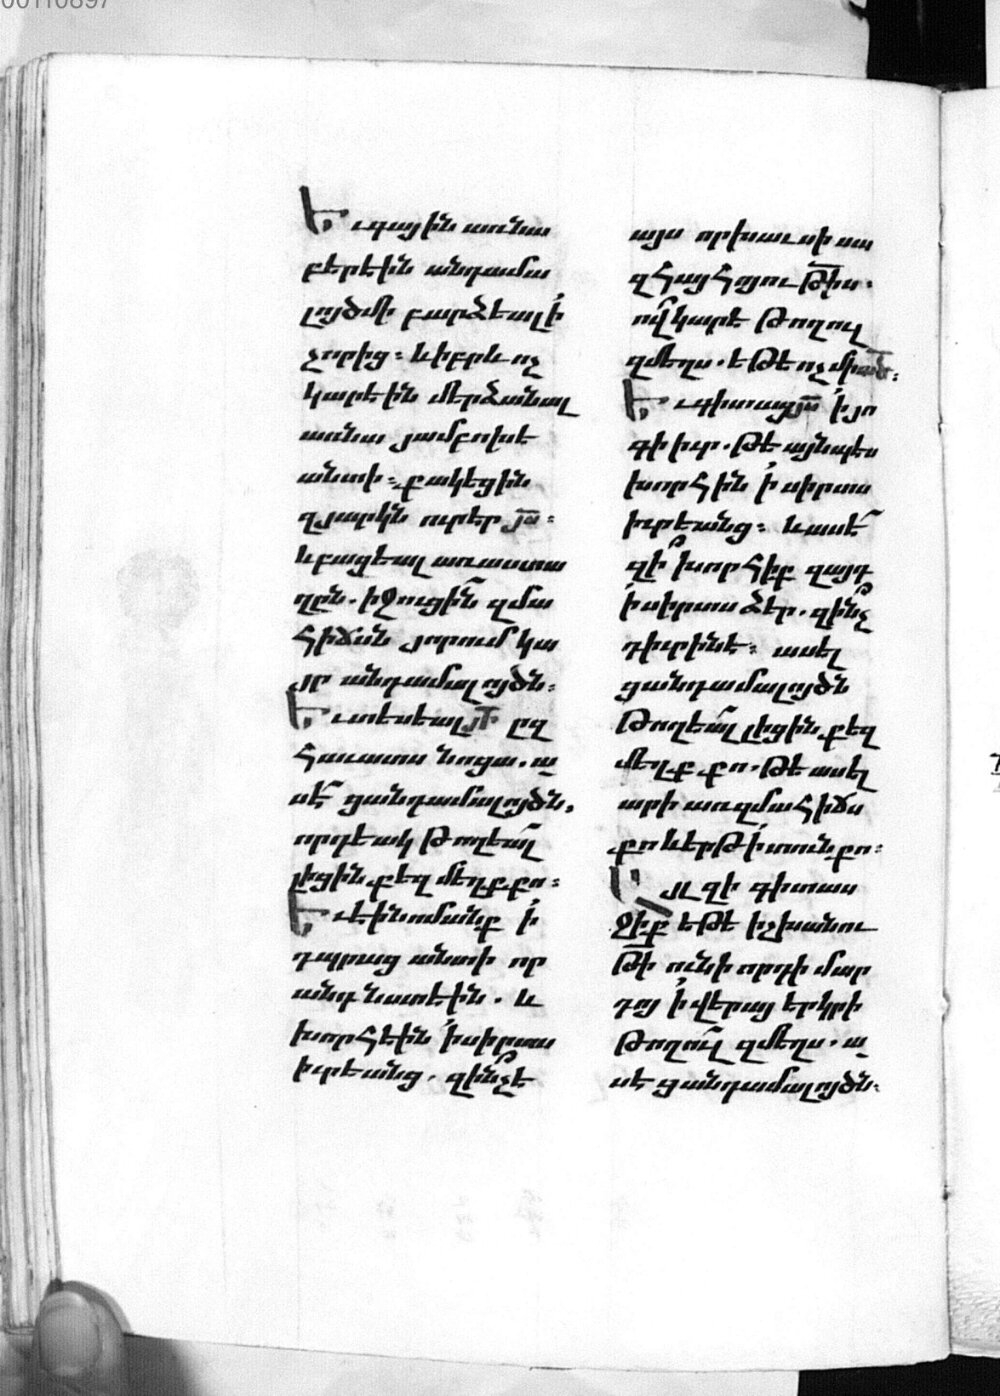 00110897
Եւ գային առ նա
բերէին անդամա
լոյծ մի բարձեալ ի
չորից։ և իբրև ոչ
կարէին մերձանալ
առ նա յամբոխէ
անտի։ քակեցին
զյարկն ուր էր յս̅։
և բացեալ զառաստա
ղըն. իջուցի̅ն զմա
հիճսն յորում կա
յր անդամալոյծն։
Եւ տեսեալ յի̅ ըզ
հաւատս նոցա. ա
սէ̅ ցանդամալոյծն.
որդեակ թողեա̅լ
լիցին քեզ մեղք քո։
Եւ էին ոմանք ի
դպրաց անտի որ
անդ նստէին. և
խորհէին ի սիրտս
իւրեանց. զի̅նչ է
այս որ խաւսի սա
զհայհոյութի̅ս.
ո̅վ կարէ թողուլ
զմեղս. եթէ ոչ մի ած̅։
Եւ գիտաց յս̅ ի յո
գի իւր. թէ այնպէս
խորհին ի սիրտս
իւրեանց։ և ասէ̅
զի՞ խորհիք զայդ
ի սիրտս ձեր. զի՞նչ
դիւրին է։ ասել
ցանդամալոյծն
թողեա̅լ լիցին քեզ
մեղք քո. թէ ասել
արի առ զմահիճս
քո և երթ ի տուն քո։
Այլ զի գիտաս
ջիք եթէ իշխանու
թի̅ ունի որդի մար
դոյ ի վերայ երկրի
թողու̅լ զմեղս. ա
սէ ցանդամալոյծն։